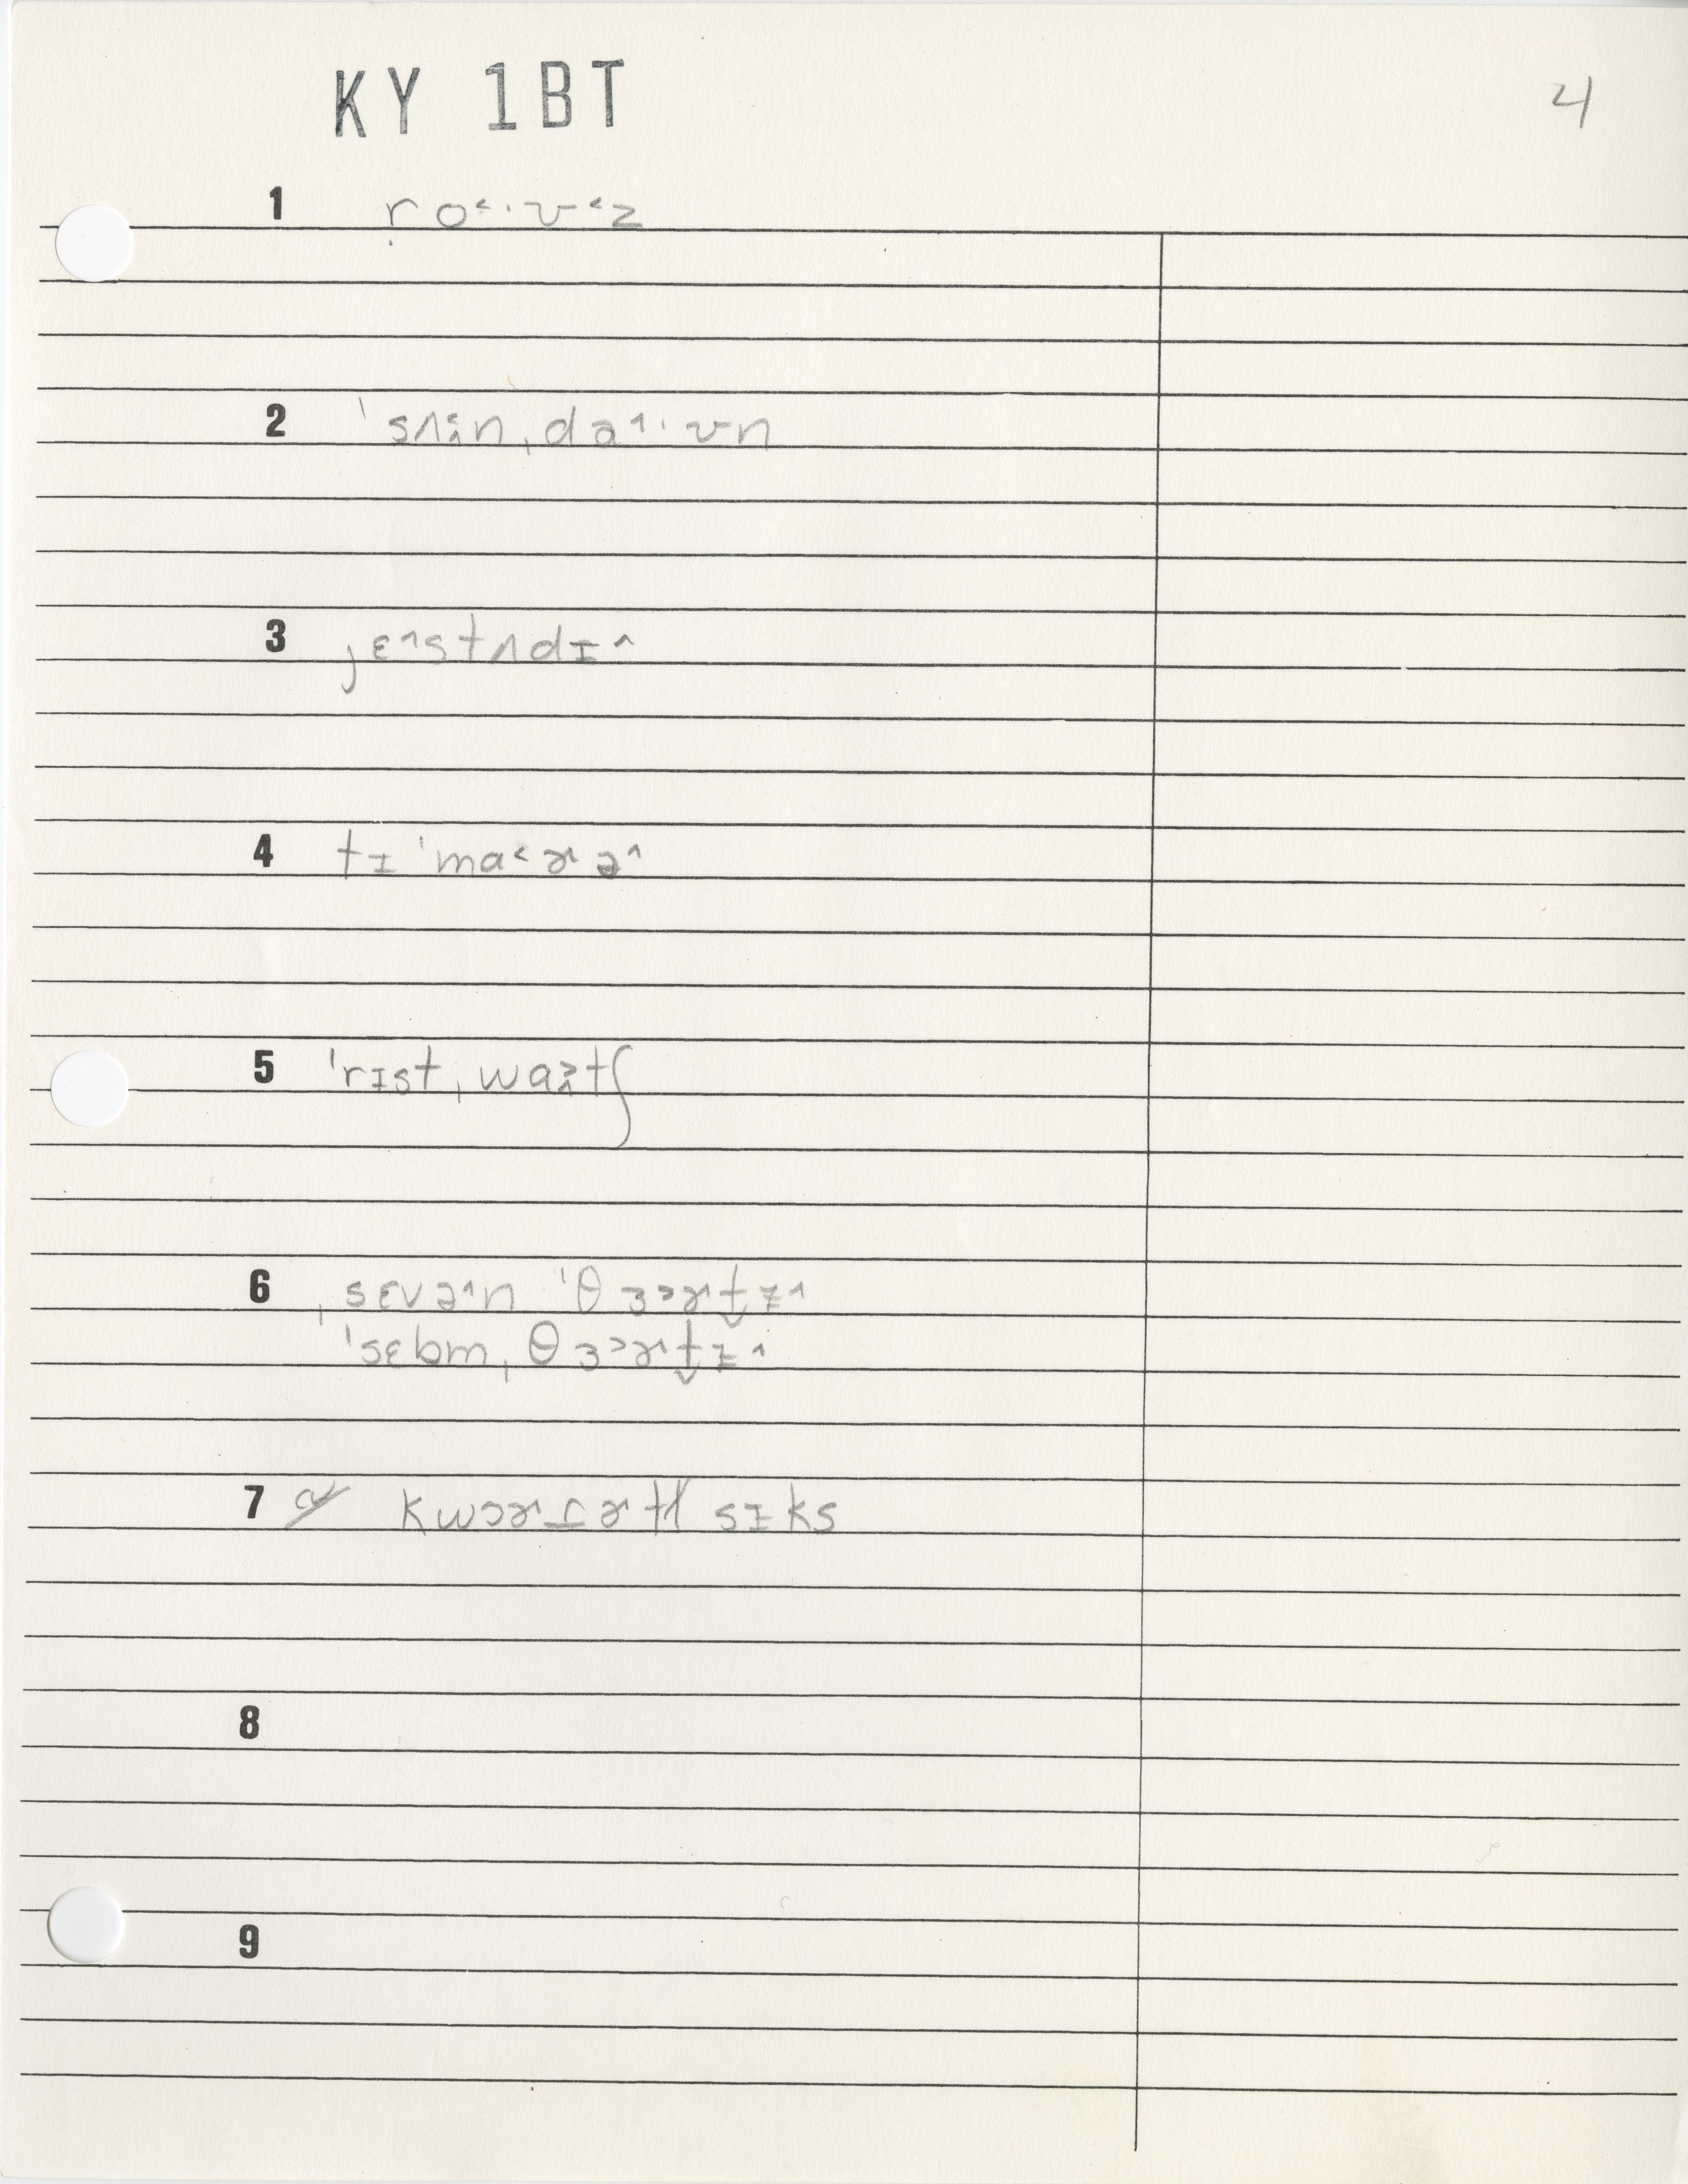 KY 1BT
4
1 ṛo˂·ʊ˂z
2 ˈsʌi̭n ˌda˄·ʊn
3 jɛ˄stʌdɪ˄
4 tɪˈma˂ɚə˄
5 ˈrɪst ˌwatʃ
6 ˌsɛvə˄n ˈθɜ˃ɚt̬ɪ˄
ˈsɛbm ˌθɜ˃ɚt̬ɪ˄
7 kwɔɚɾɚtl sɪks
8
9